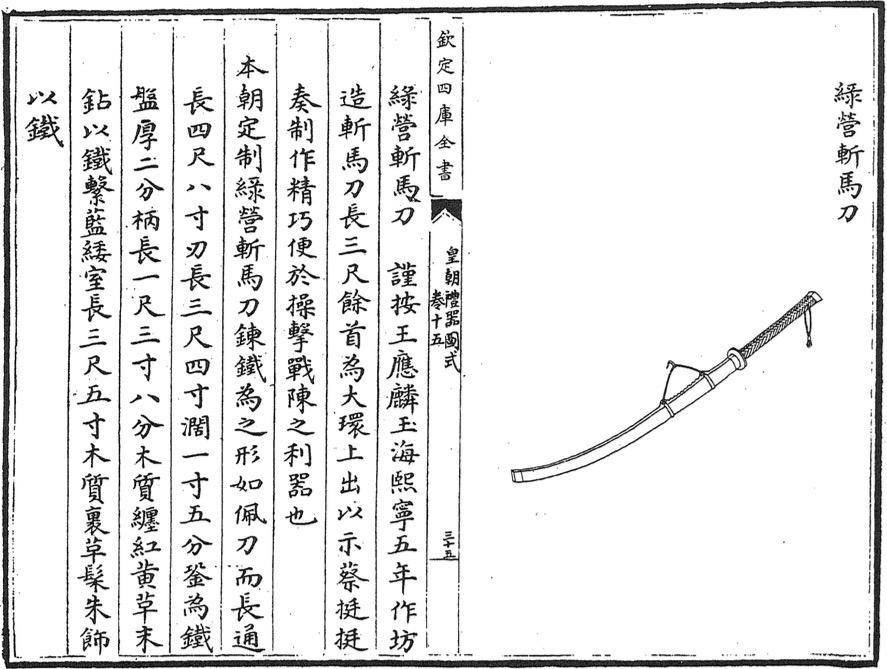 綠營斬馬刀
欽定四庫全書
皇朝禮器圖式
卷十五
三十五
綠營斬馬刀　謹按王應麟玉海熙寧五年作坊
造斬馬刀長三尺餘首為大環上出以示蔡挺挺
奏制作精巧便於操擊戰陳之利器也
本朝定制綠營斬馬刀鍊鐵為之形如佩刀而長通
長四尺八寸刃長三尺四寸濶一寸五分銎為鐵
盤厚二分柄長一尺三寸八分木質纏紅黄草末
鉆以鐵繫藍緌室長三尺五寸木質裹草髹朱飾
以鐵